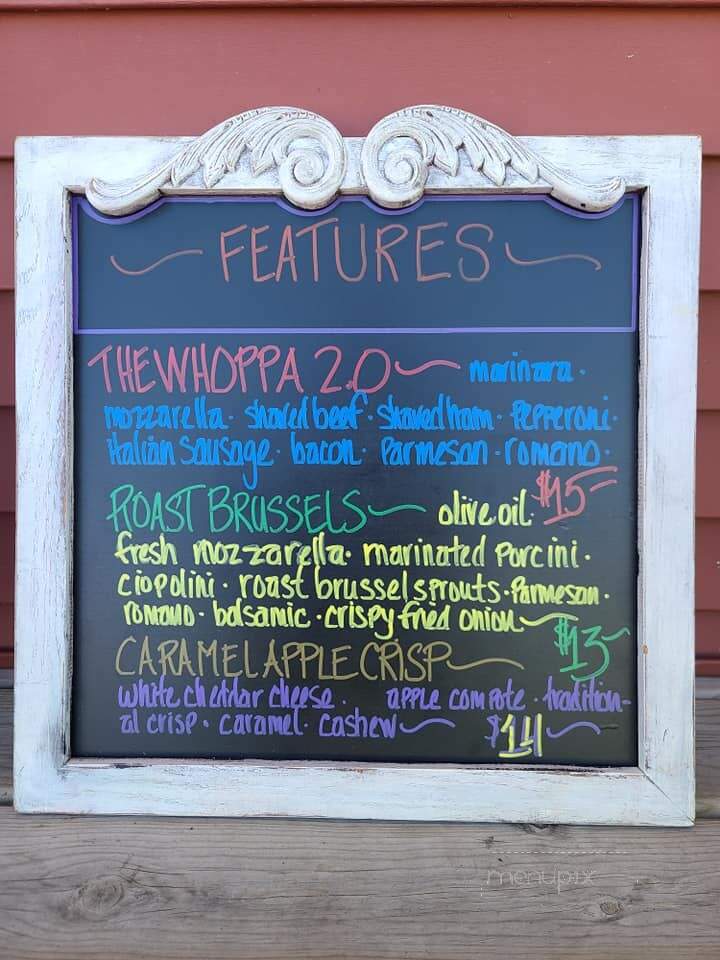 FEATURES
THE WHOPPA 2.0 marinara ·
mozzarella · shaved beef · shaved ham · Pepperoni ·
italian sausage · bacon · Parmesan · romano ·
$15
ROAST BRUSSELS olive oil ·
fresh mozzarella · marinated Porcini ·
ciopolini · roast brussel sprouts · Parmesan ·
romano · balsamic · crispy fried onion
$13
CARAMEL APPLE CRISP
white cheddar cheese · apple compote · tradition-
al crisp · caramel · cashew $14
menupix